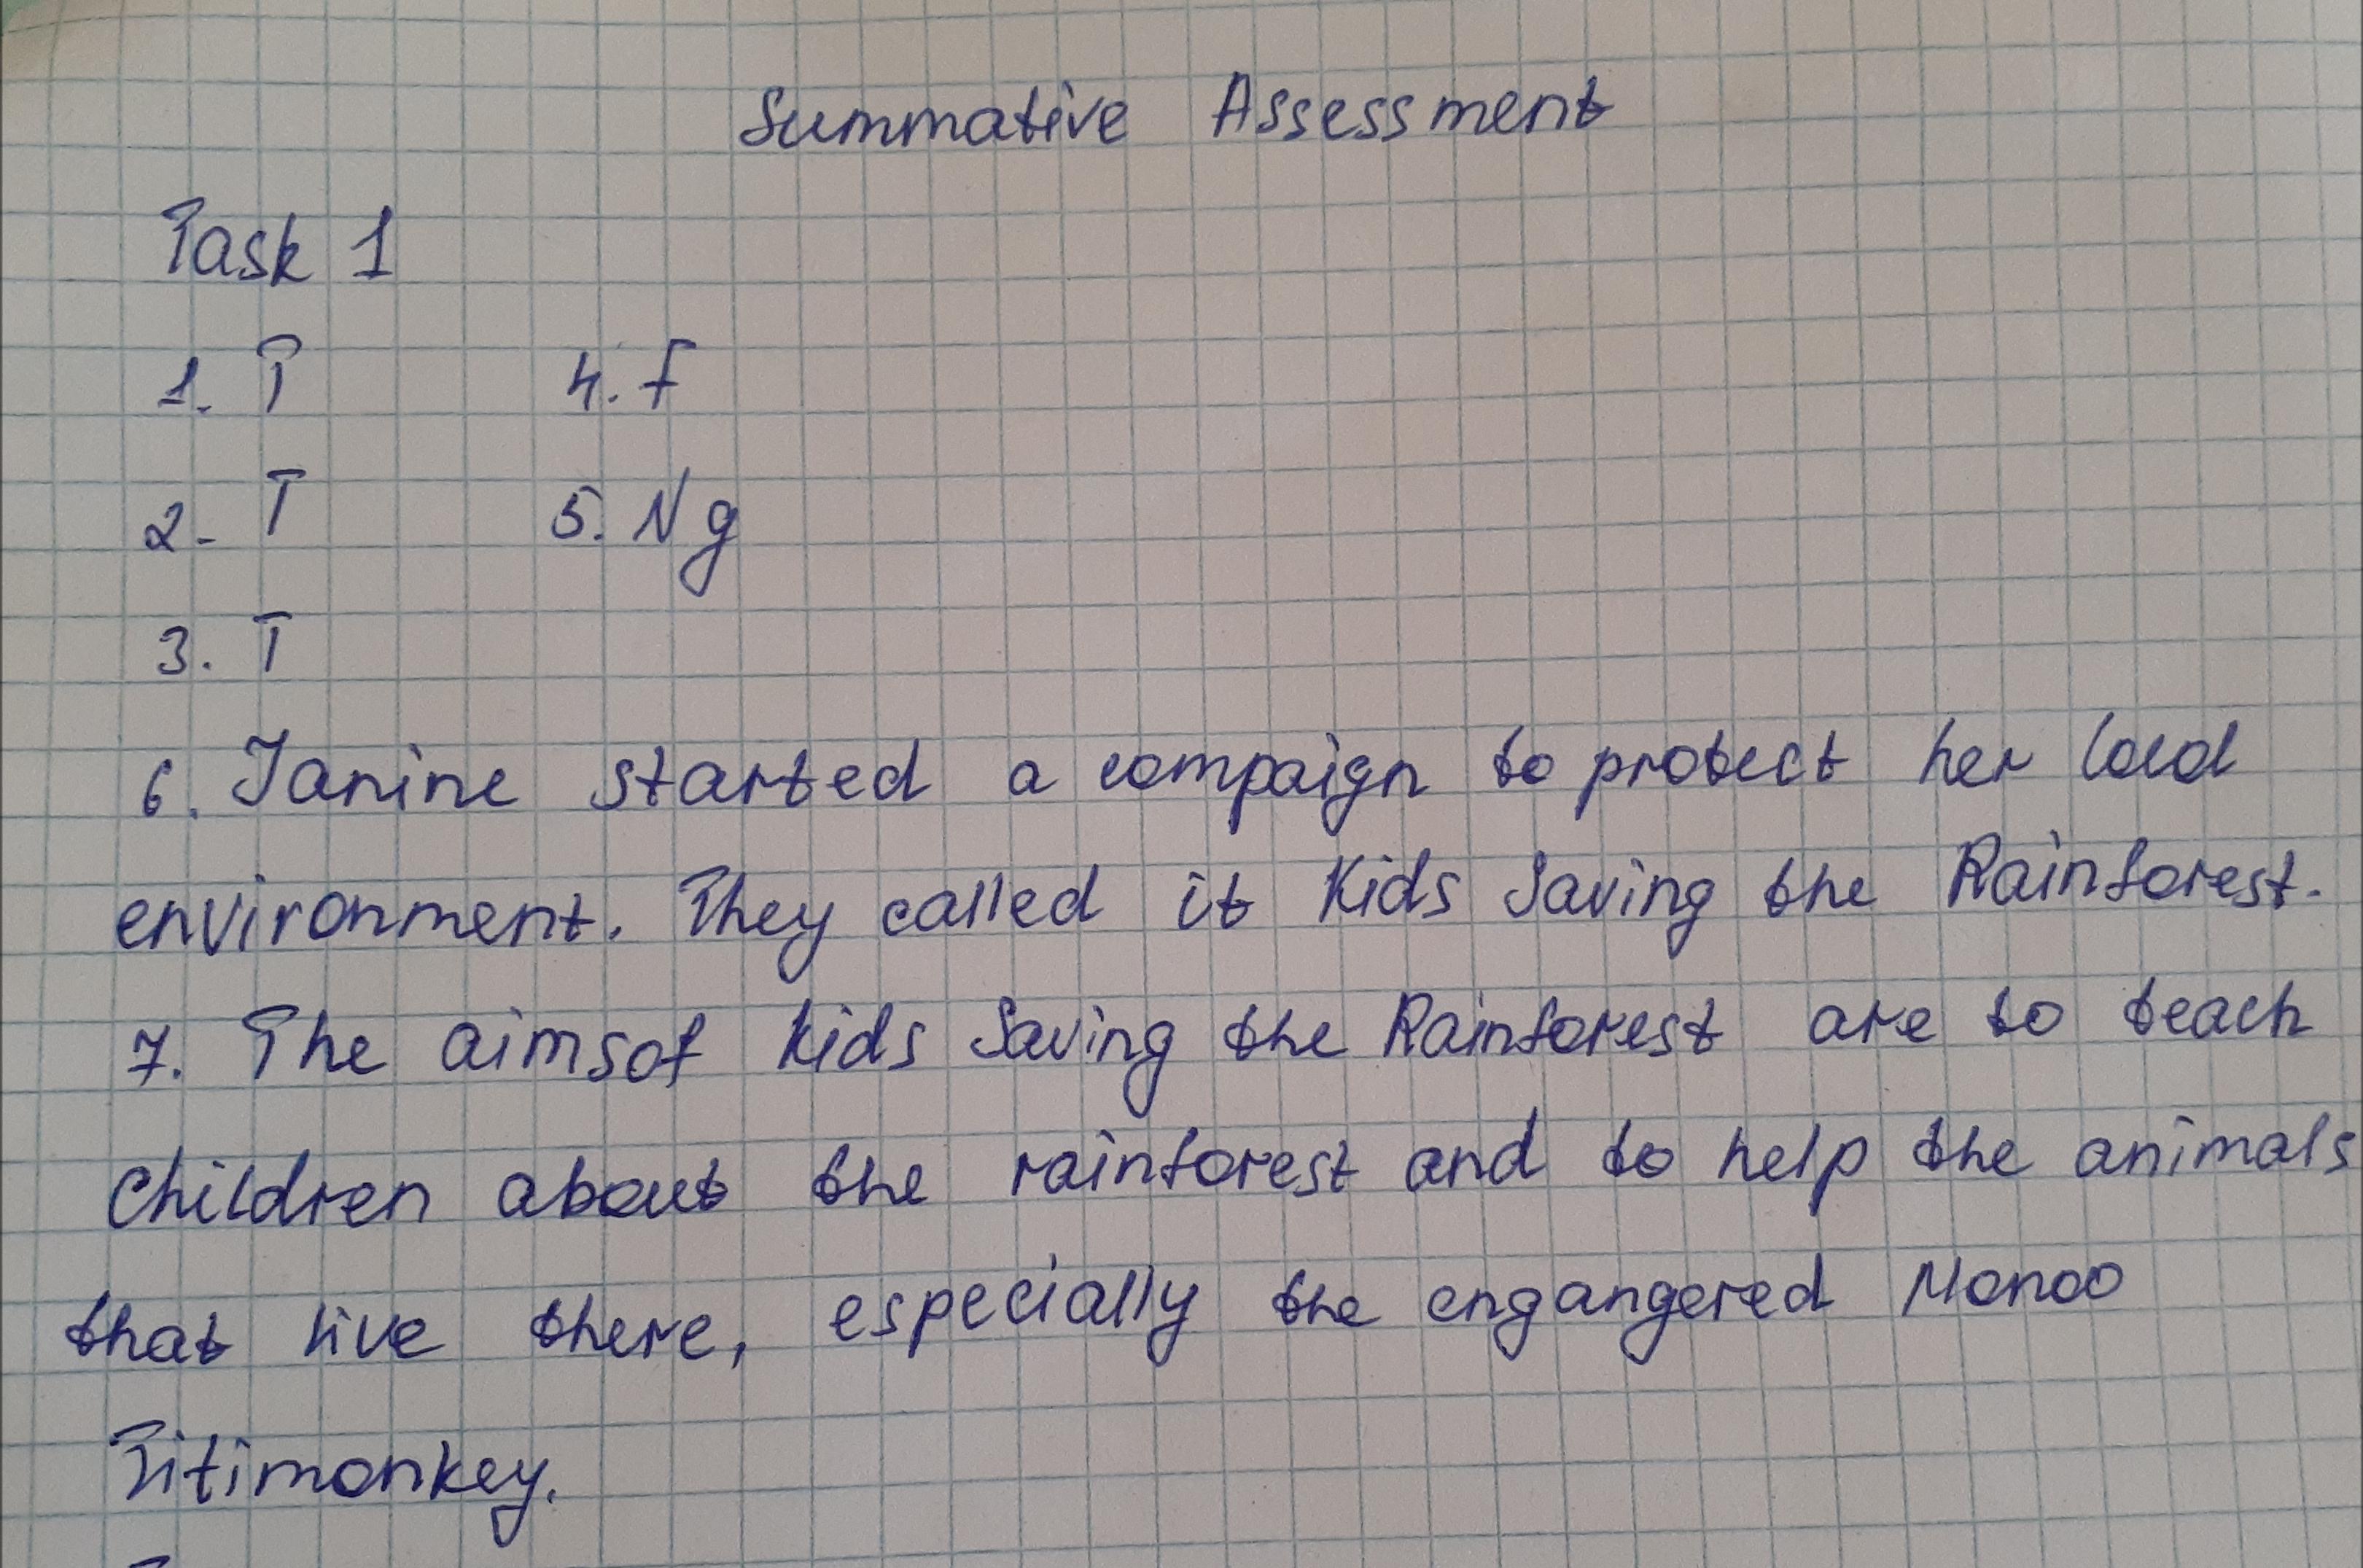 Summative Assessment
Task 1
1. T 4. F
2. T 5. Ng
3. T
6. Janine started a compaign to protect her
environment. They called it Kids Saving the Rainforest.
7. The aimsof kids Saving the Rainforest are to teach
children about the rainforest and to help the animals
that live there, especially the engangered Monoo
Titimonkey.